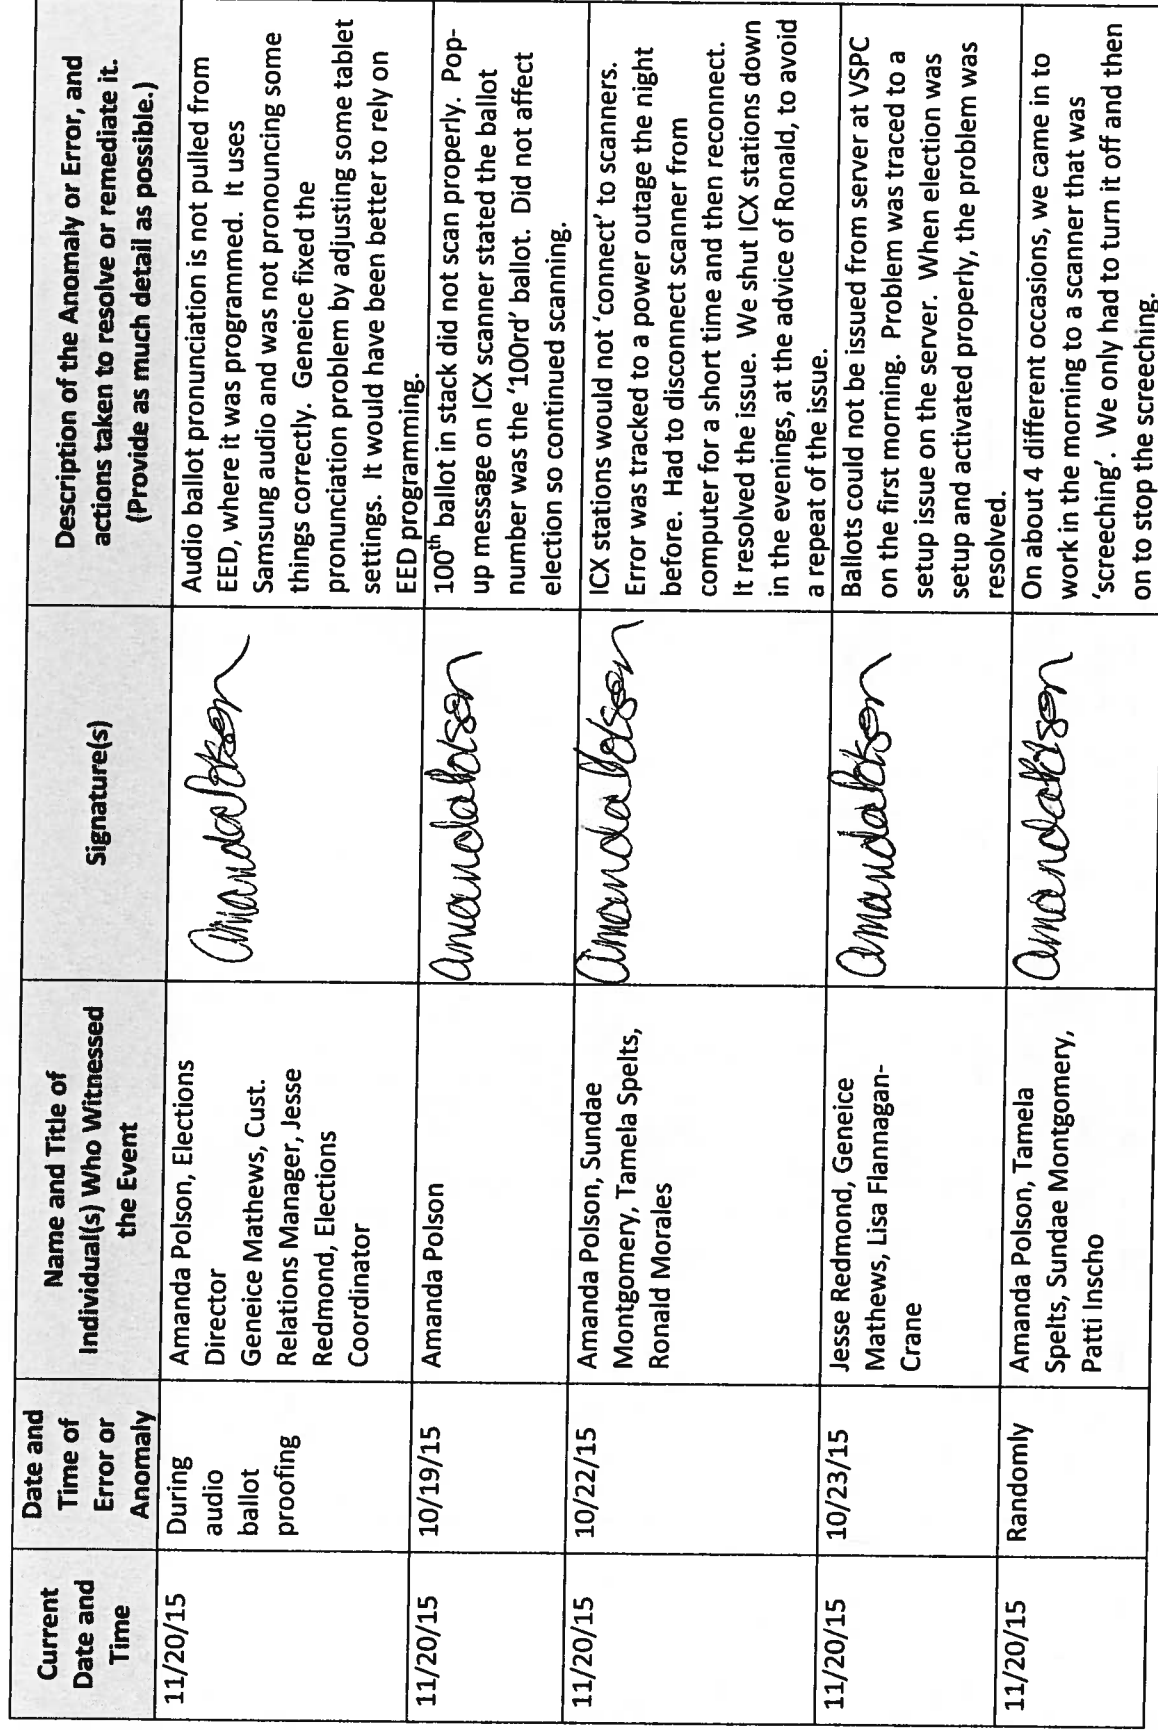 Current
Date and
Time
Date and
Time of
Error or
Anomaly
Name and Title of
Individual(s) Who Witnessed
the Event
Signature(s)
Description of the Anomaly or Error, and
actions taken to resolve or remediate it.
(Provide as much detail as possible.)
11/20/15
During
audio
ballot
proofing
Amanda Polson, Elections
Director
Geneice Mathews, Cust.
Relations Manager, Jesse
Redmond, Elections
Coordinator
Amanda Polson
Audio ballot pronunciation is not pulled from
EED, where it was programmed. It uses
Samsung audio and was not pronouncing some
things correctly. Geneice fixed the
pronunciation problem by adjusting some tablet
settings. It would have been better to rely on
EED programming.
11/20/15
10/19/15
Amanda Polson
Amanda Polson
100th ballot in stack did not scan properly. Pop-
up message on ICX scanner stated the ballot
number was the '100rd' ballot. Did not affect
election so continued scanning.
11/20/15
10/22/15
Amanda Polson, Sundae
Montgomery, Tamela Spelts,
Ronald Morales
Amanda Polson
ICX stations would not 'connect' to scanners.
Error was tracked to a power outage the night
before. Had to disconnect scanner from
computer for a short time and then reconnect.
It resolved the issue. We shut ICX stations down
in the evenings, at the advice of Ronald, to avoid
a repeat of the issue.
11/20/15
10/23/15
Jesse Redmond, Geneice
Mathews, Lisa Flannagan-
Crane
Amanda Polson
Ballots could not be issued from server at VSPC
on the first morning. Problem was traced to a
setup issue on the server. When election was
setup and activated properly, the problem was
resolved.
11/20/15
Randomly
Amanda Polson, Tamela
Spelts, Sundae Montgomery,
Patti Inscho
Amanda Polson
On about 4 different occasions, we came in to
work in the morning to a scanner that was
'screeching'. We only had to turn it off and then
on to stop the screeching.